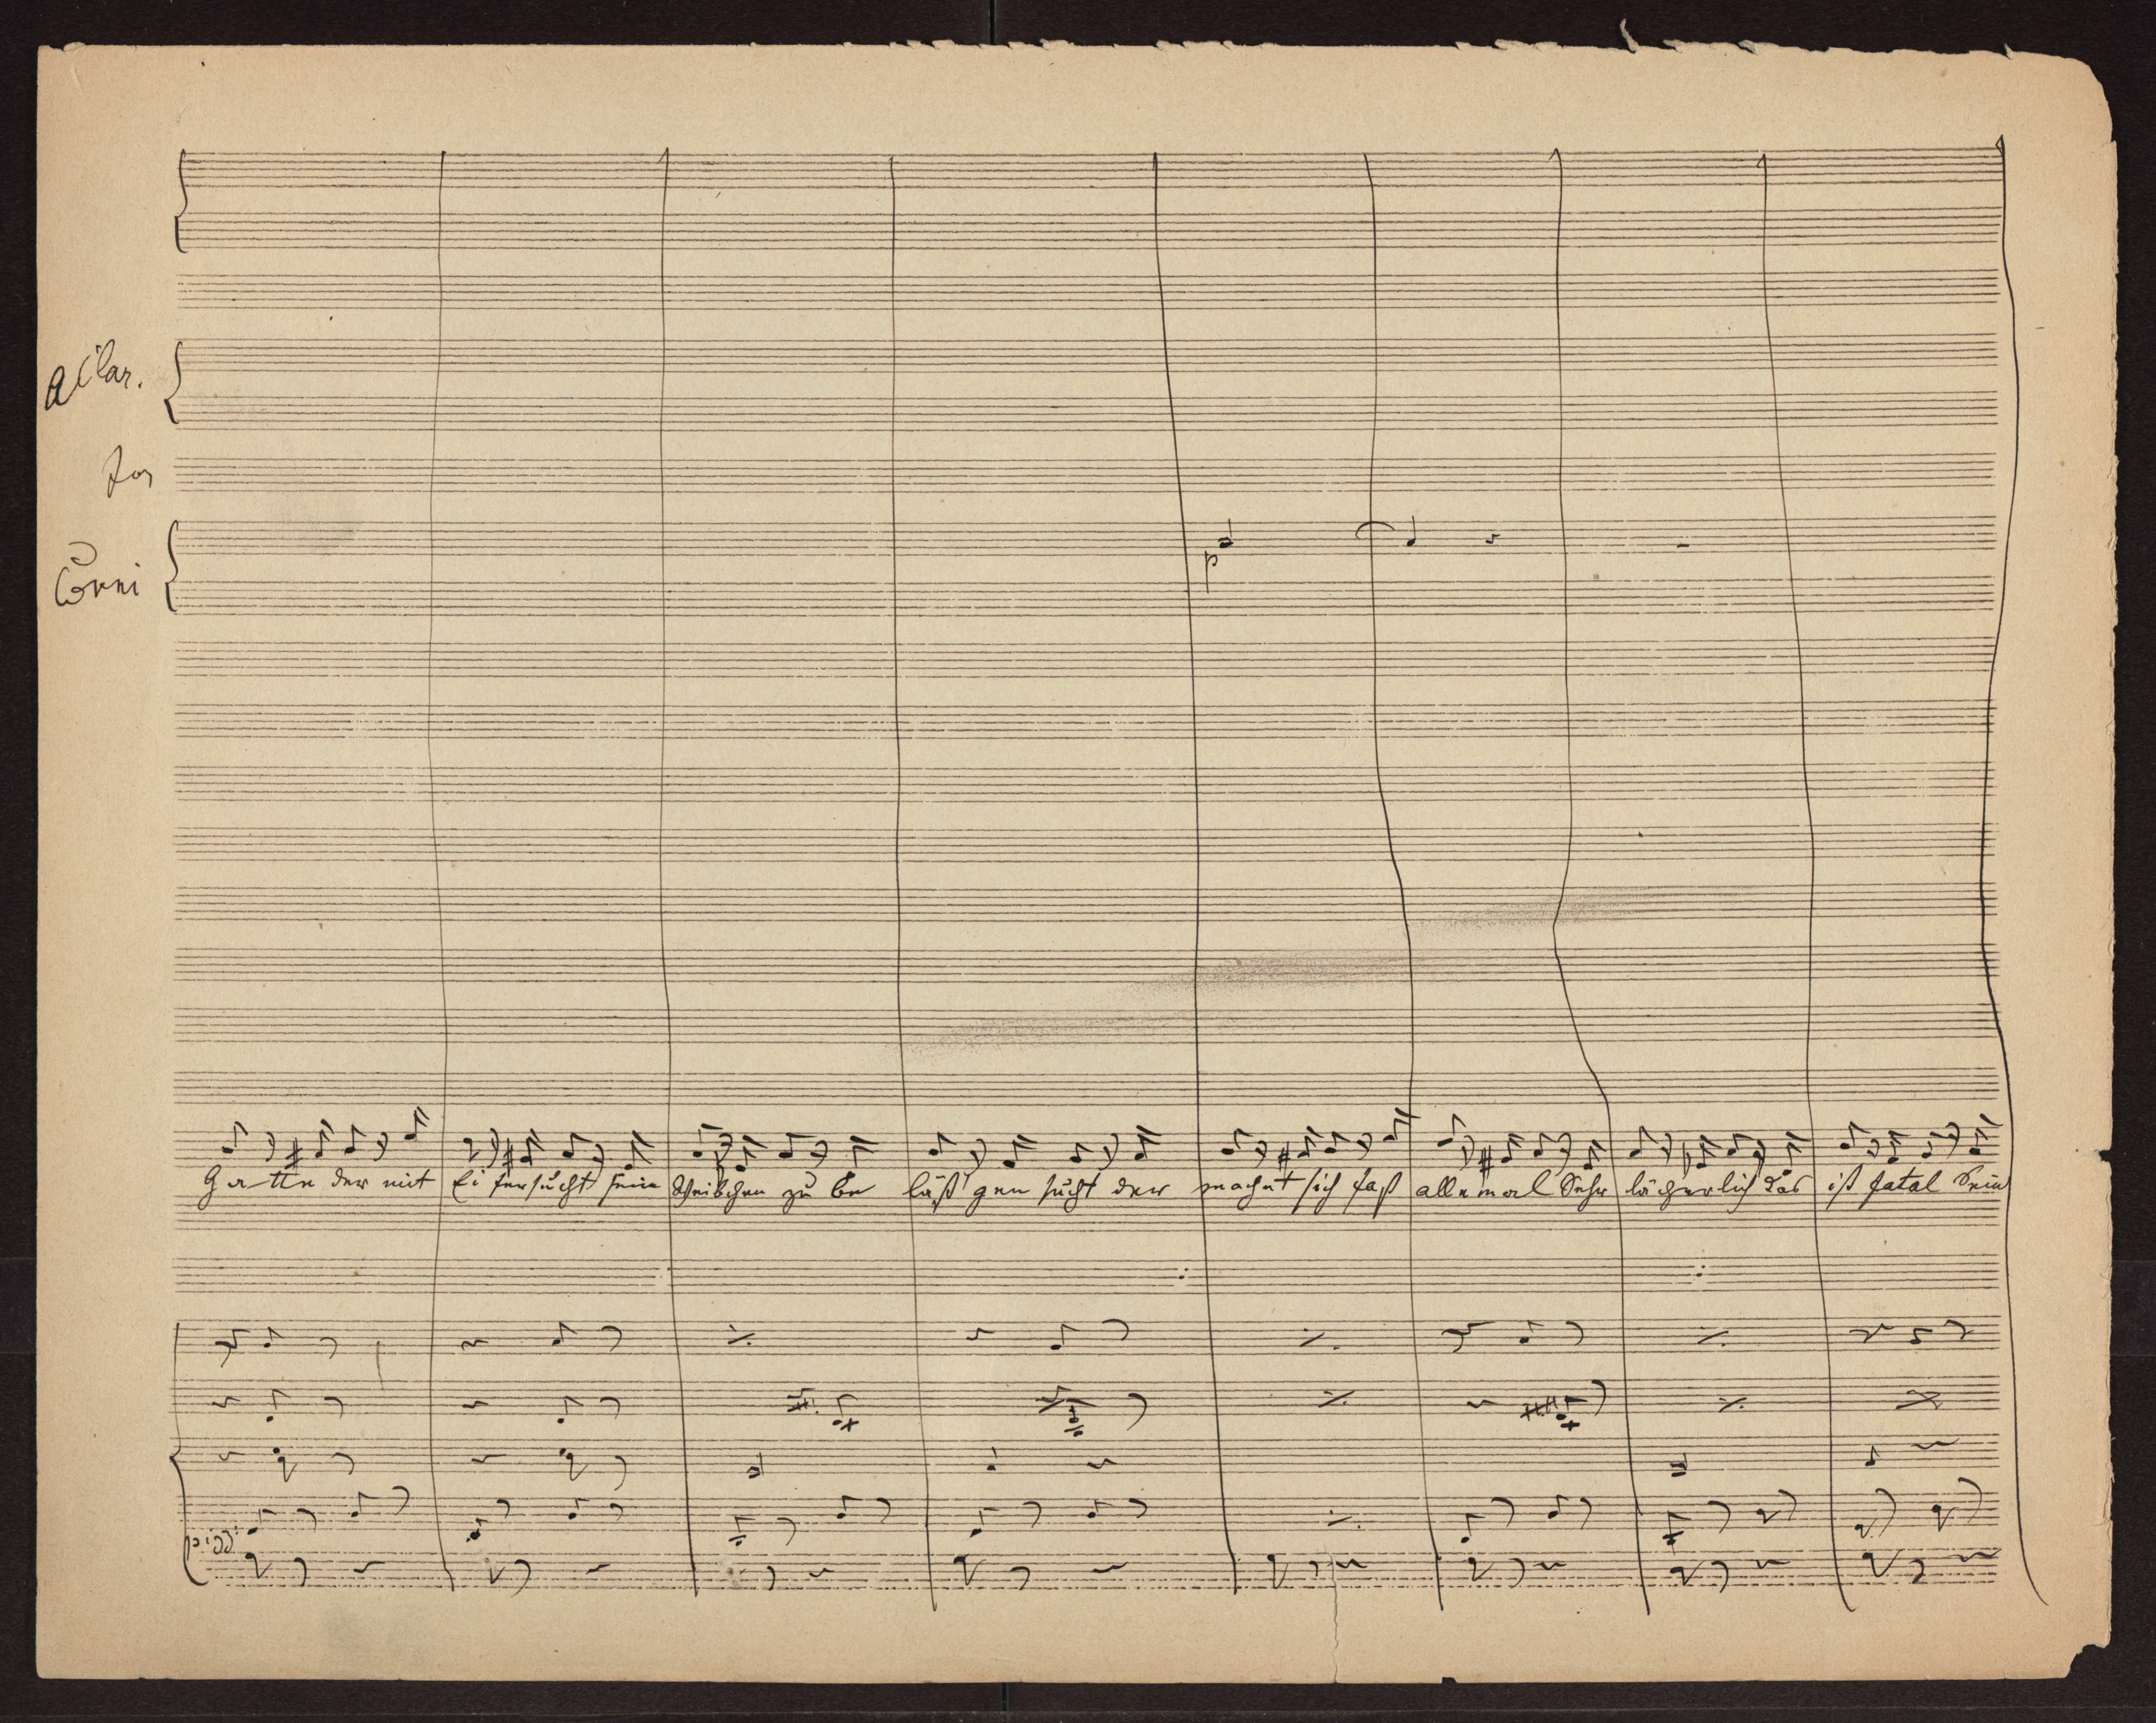 A Clar.
Fag
Corni
p
Gatte der mit Eifersucht sein Weibchen zu be läst'gen sucht der macht sich fast allemal Sehr lächerlich das ist fatal Sein
pizz